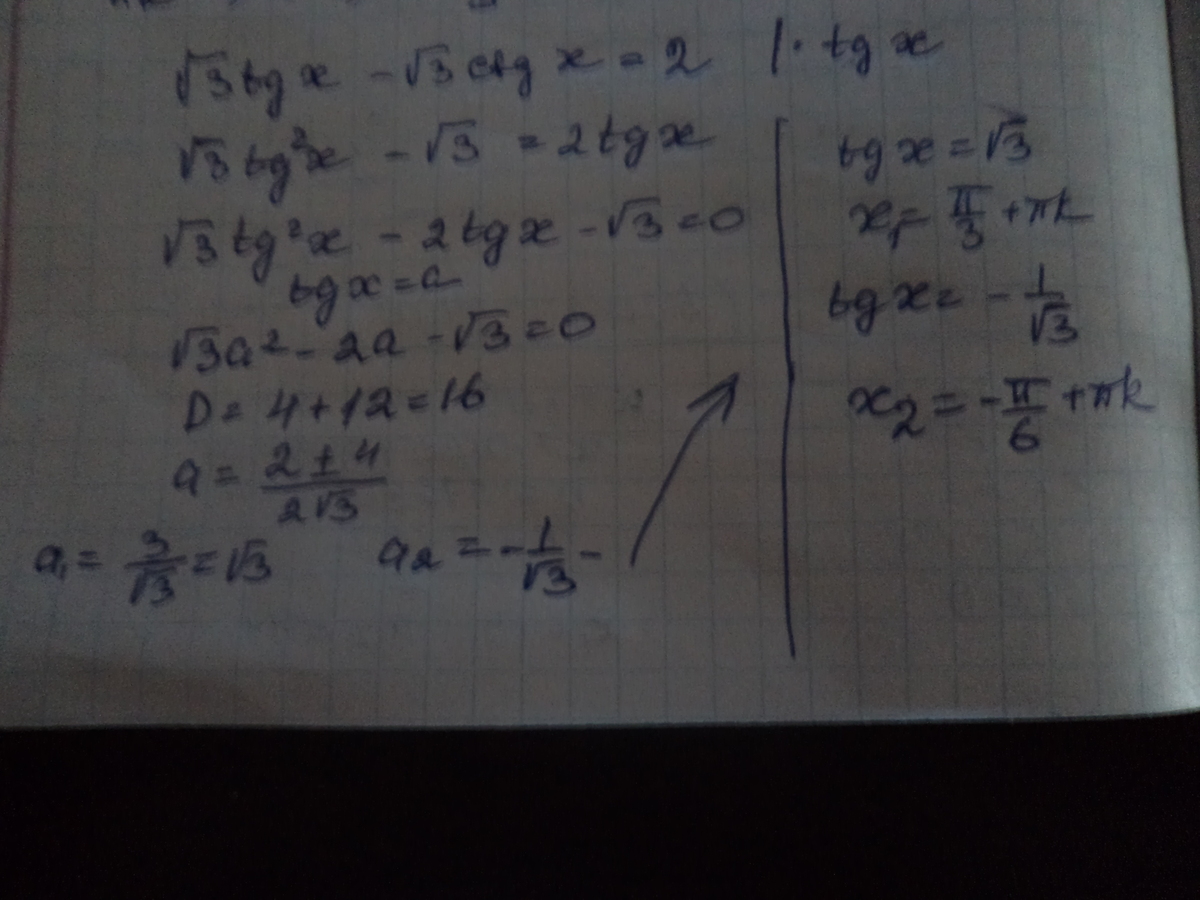 √3 tg x - √3 ctg x = 2 | · tg x
√3 tg²x - √3 = 2 tg x
√3 tg²x - 2 tg x - √3 = 0
tg x = a
√3a² - 2a - √3 = 0
D = 4 + 12 = 16
a = (2 ± 4)/(2√3)
a₁ = 3/√3 = √3 a₂ = -1/√3 -
tg x = √3
x₁ = π/3 + πk
tg x = -1/√3
x₂ = -π/6 + πk